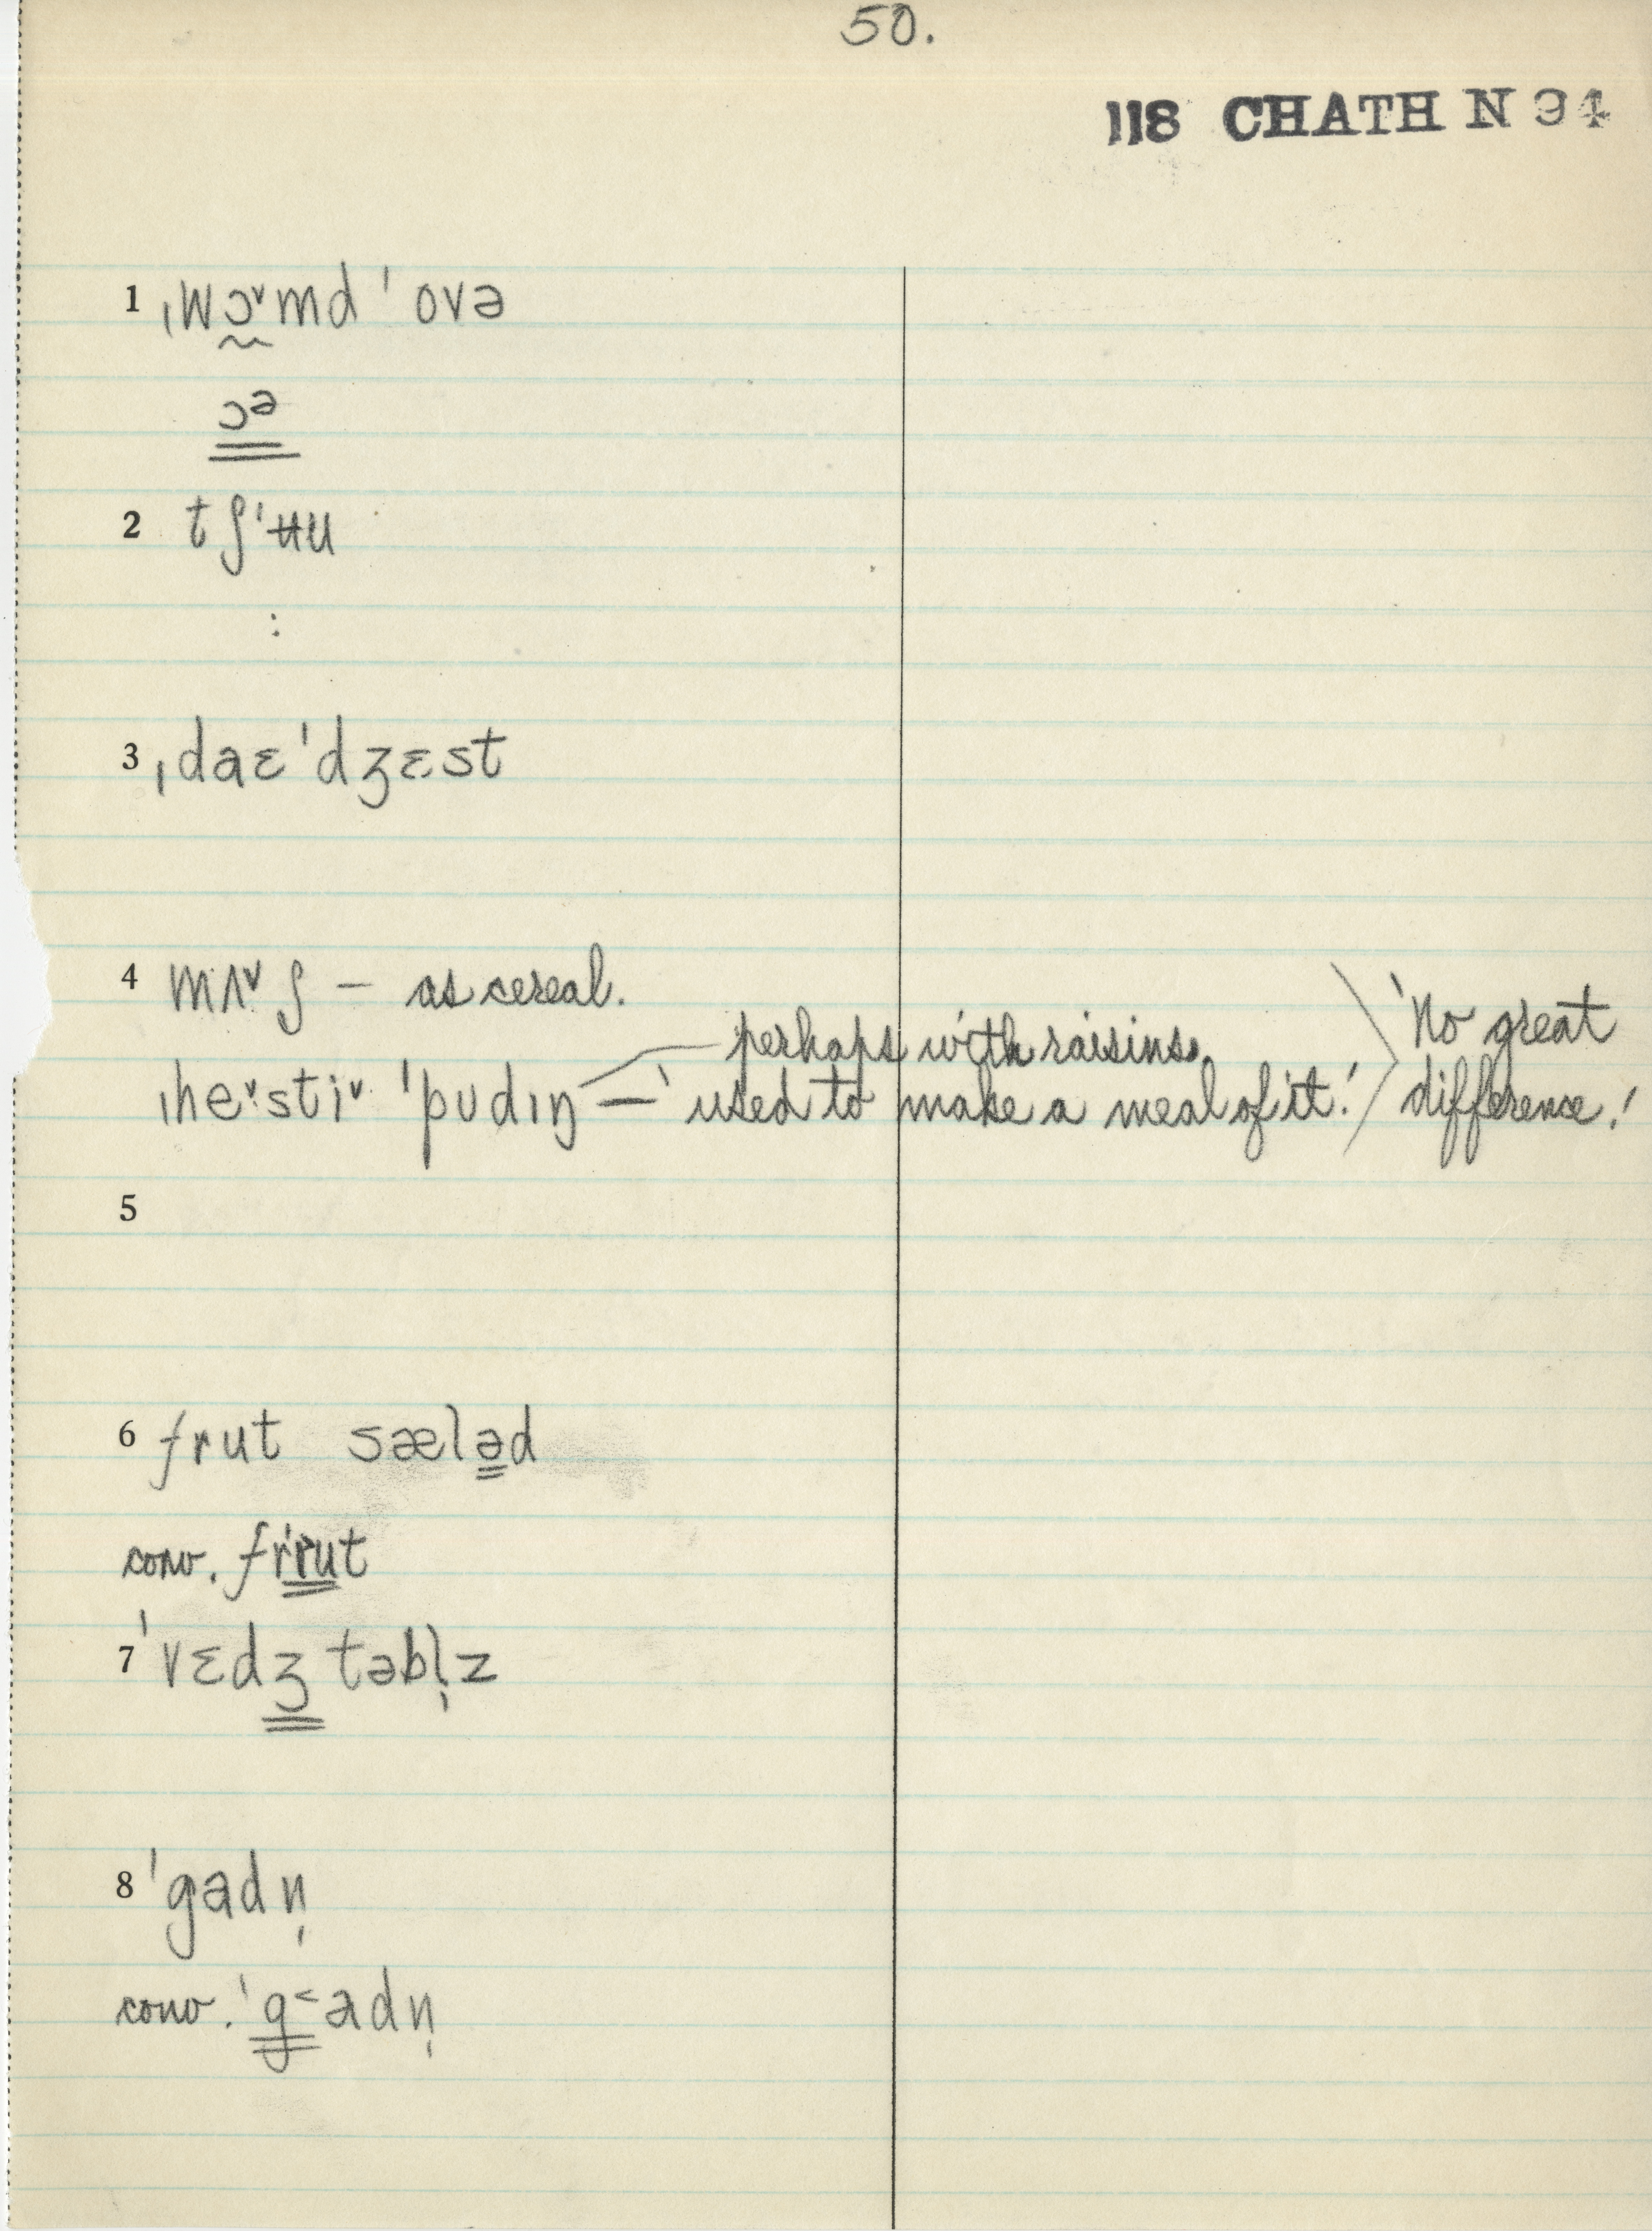 50.
118 CHATH N 94
1 ˌwɔ̰ˇmd ˈovə
ɔᵊ
2 tʃˈʉu
:
3 ˌdaɛˈdʒɛst
4 mʌˇʃ – as cereal.
perhaps with raisins.
ˌheˇstiˇ ˈpudɪŋ — 'used to make a meal of it.' 'No great difference.'
5
6 frut sæləd
conv. frrut
7 ˈvɛdʒtəbl̩z
8 ˈgadn̩
conv. ˈg˂adn̩